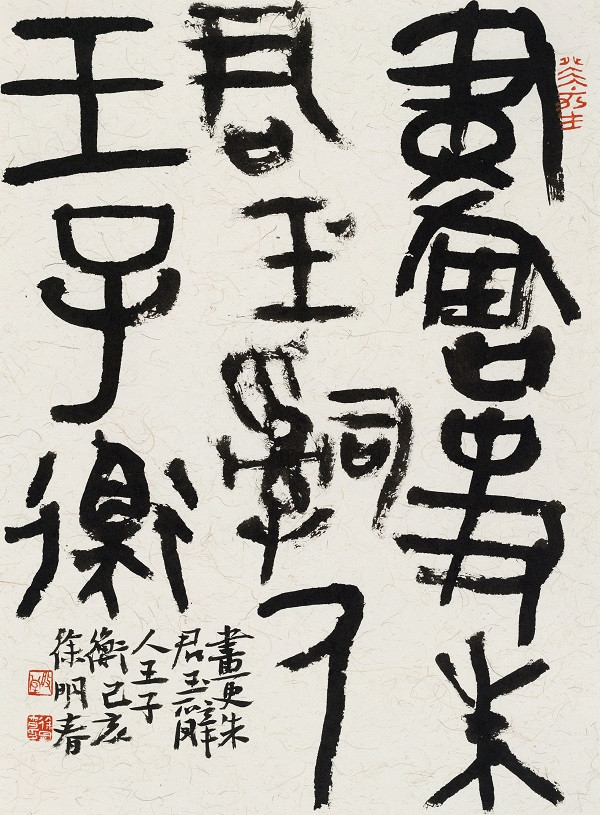 畫史朱
君玉辭人
王子衡
畫史朱
君玉辭
人王子
衡己亥
徐明春